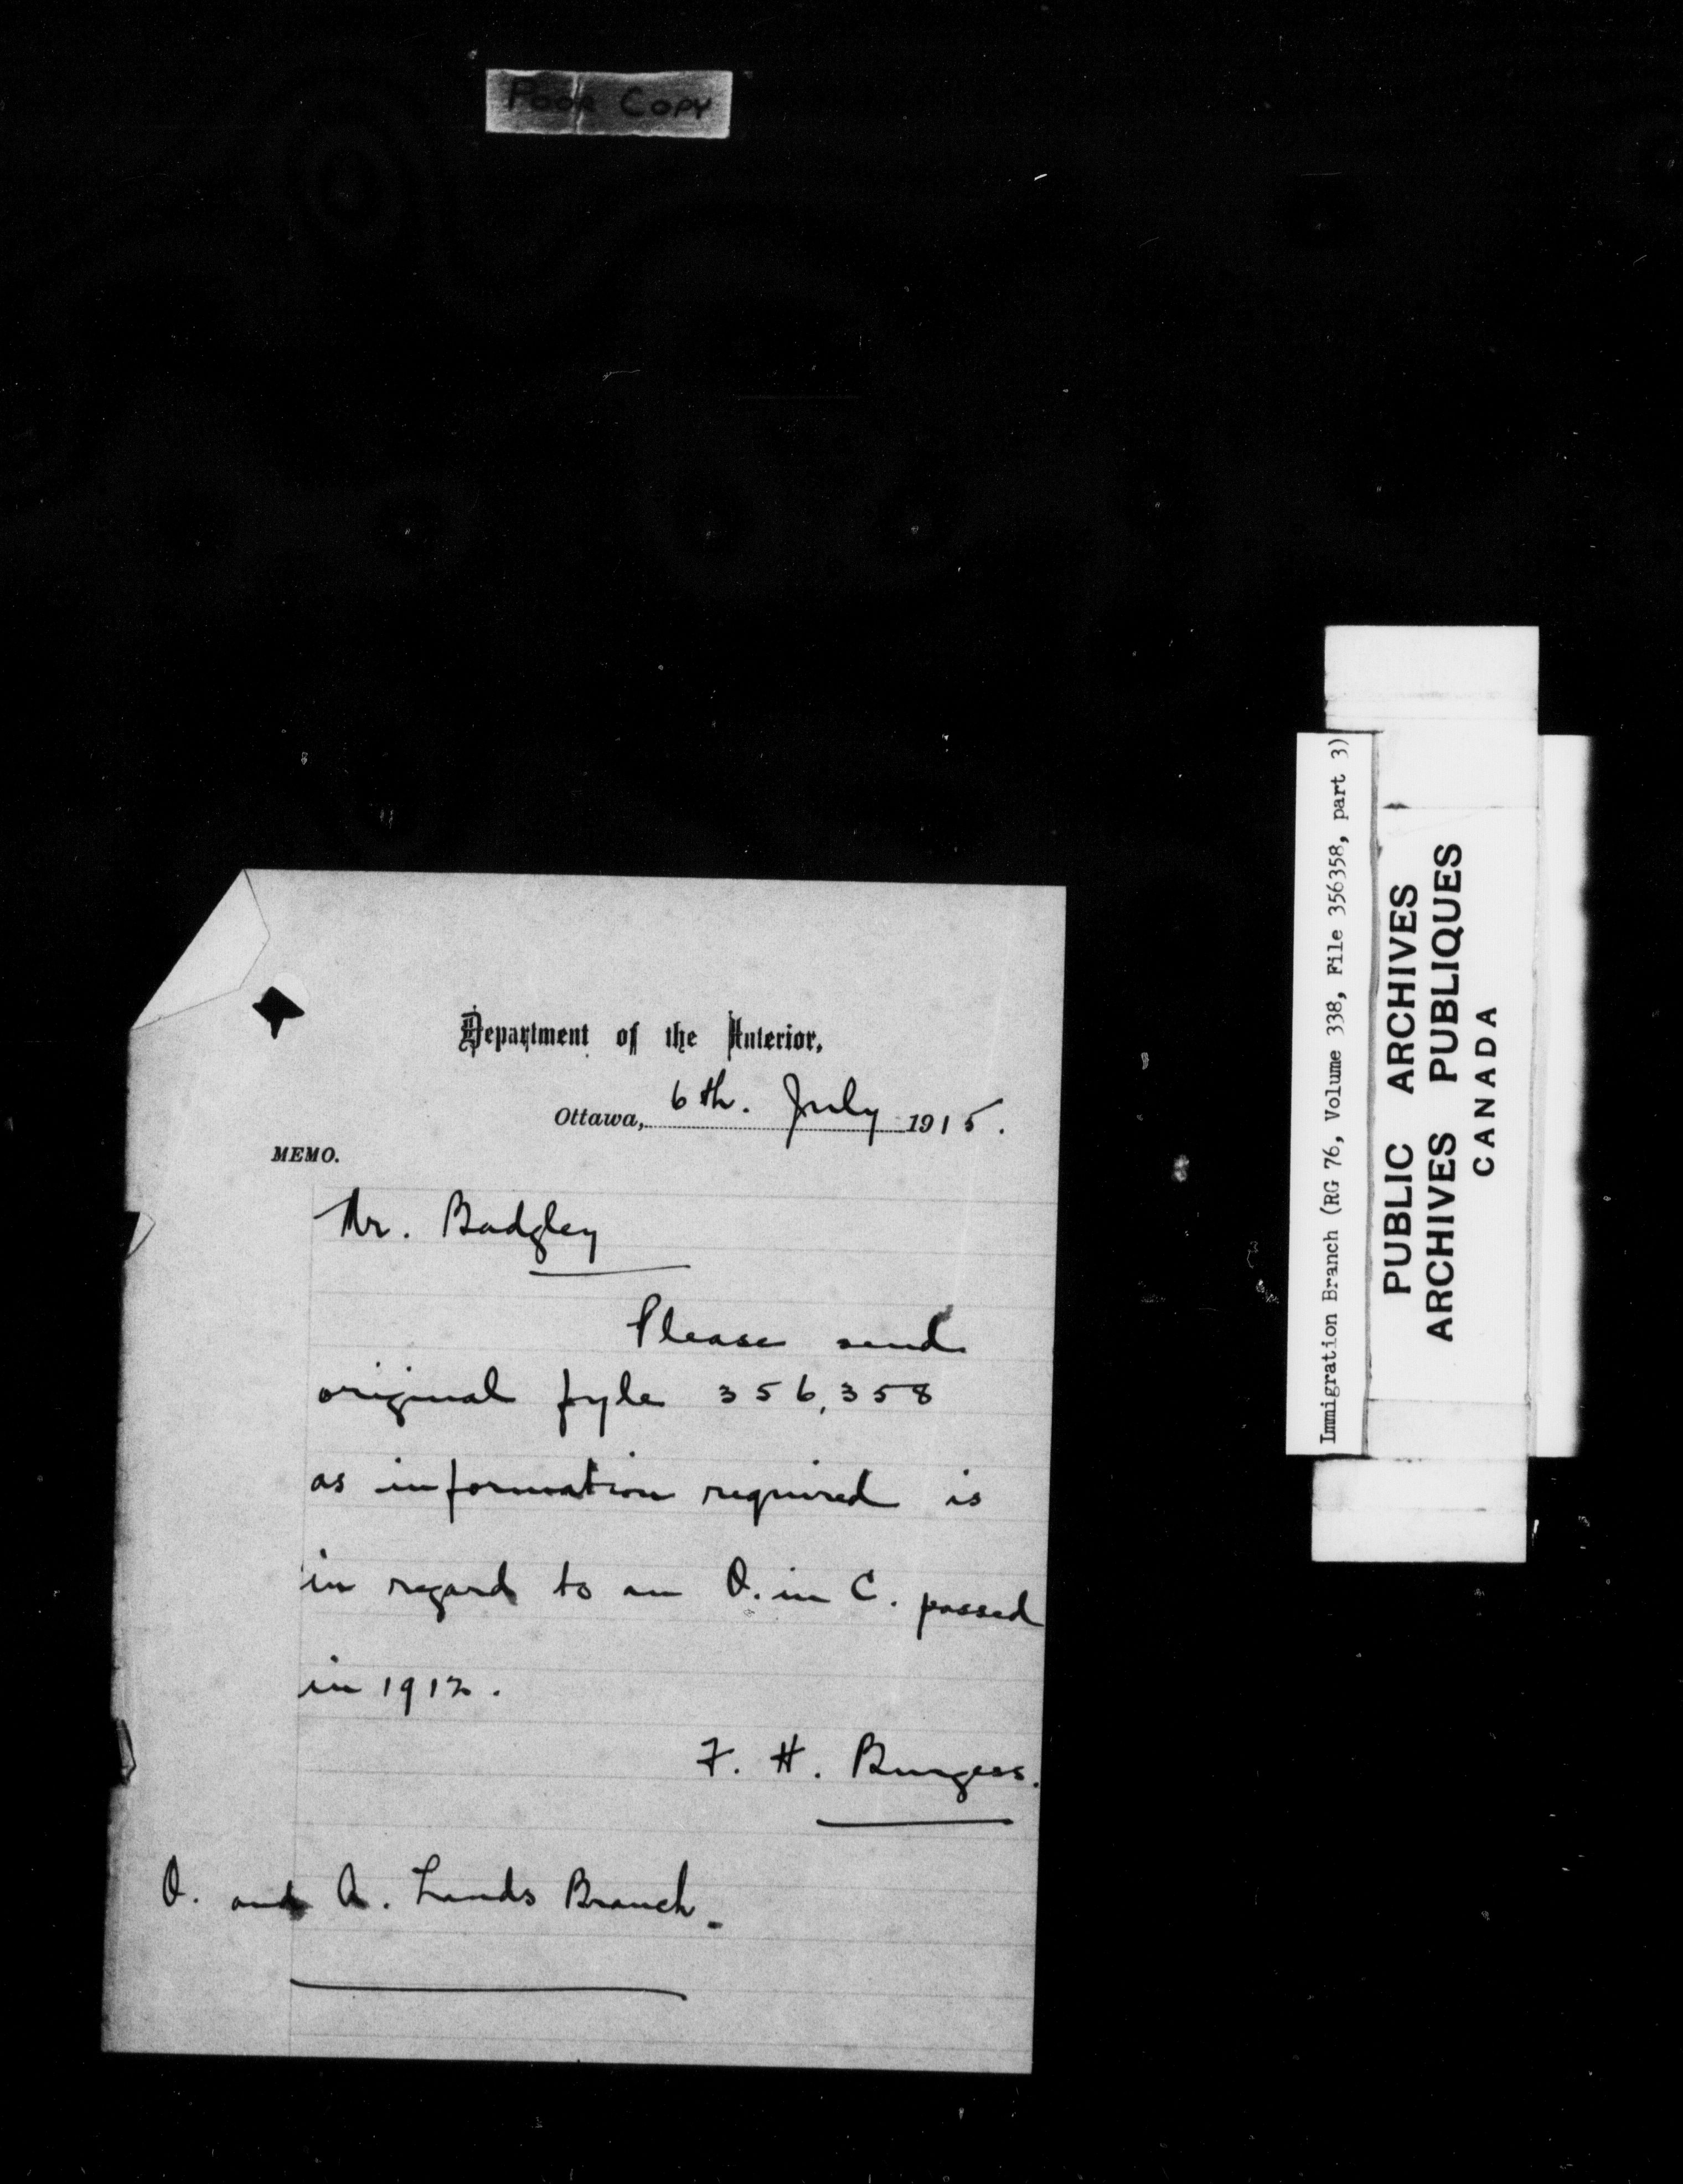 POOR COPY
Department of the Interior,
Ottawa, 6th. July 1915.
MEMO.
Mr. Badgley
Please send
original fyle 356,358
as information required is
in regard to an O. in C. passed
in 1912.
F. H. Burgess.
O. and A. Lands Branch.
Immigration Branch (RG 76, Volume 338, File 356358, part 3)
PUBLIC ARCHIVES
ARCHIVES PUBLIQUES
CANADA